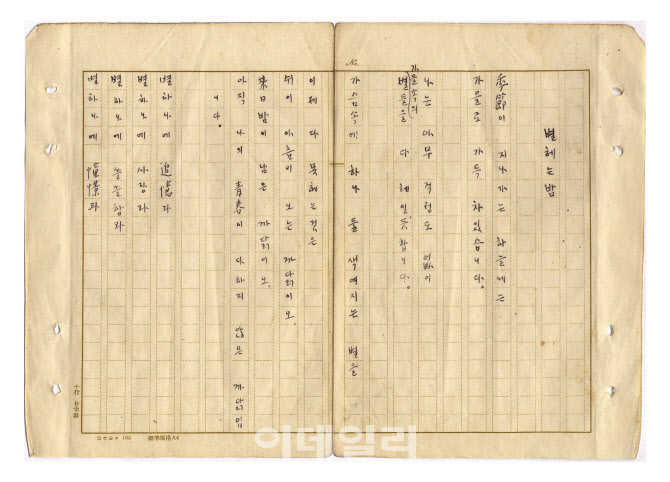 별헤는밤
季節이 지나가는 하늘에는
가을로 가득 차있습니다.
나는 아무 걱정도 없이
가을속의
별들을 다 헤일듯합니다.
가슴속에 하나 둘 색여지는 별을
이제 다 못헤는것은
쉬이 아츰이 오는 까닭이오,
來日밤이 남은 까닭이오,
아직 나의 靑春이 다하지 않은 까닭입
니다。
별하나에 追憶과
별하나에 사랑과
별하나에 쓸쓸함과
별하나에 憧憬과
No.
コクヨ 165 標準規格A4
이데일리